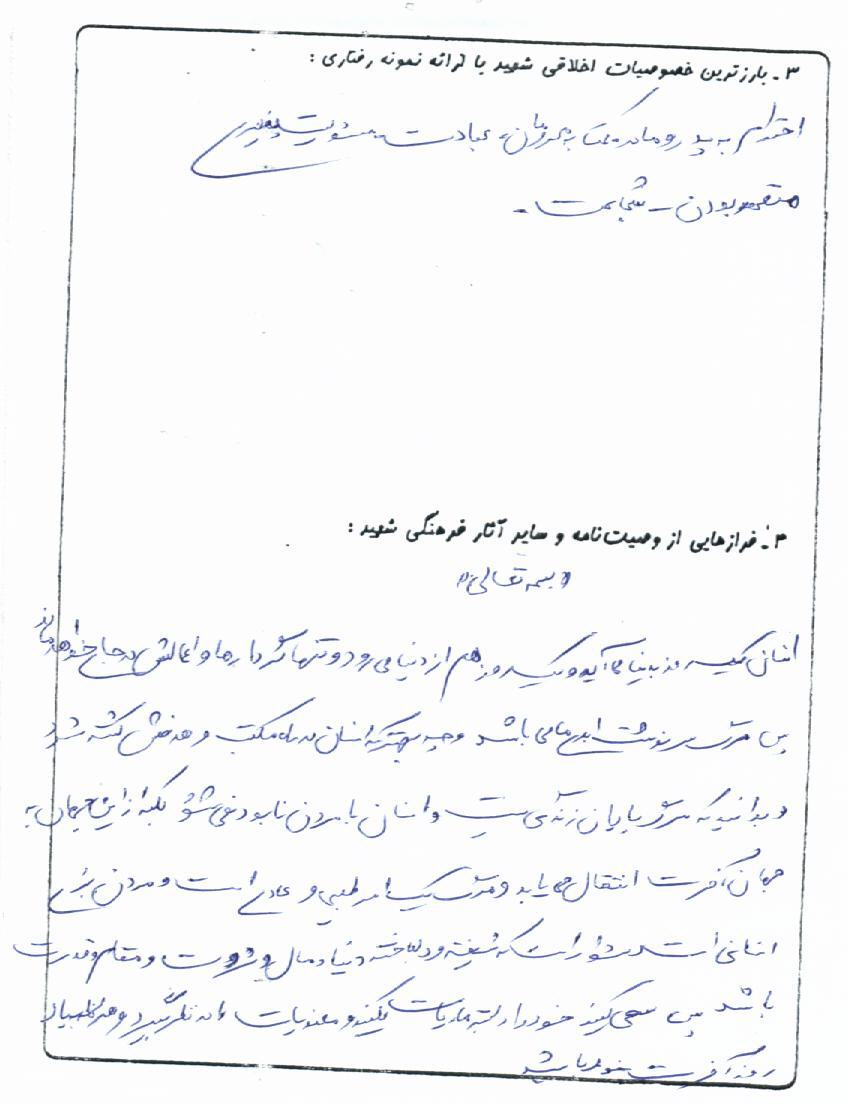 ۳ـ بارزترین خصوصیات اخلاقی شهید با ارائه نمونه رفتاری :
احترام به پدر و مادر کمک به محرومان، عبادت، مسئولیت‌پذیری
متعهد بودن ـ شجاعت ـ
۴ـ فرازهایی از وصیت‌نامه و سایر آثار فرهنگی شهید :
«بسمه تعالی»
انسان یک روز بدنیا می‌آید و یک روز هم از دنیا می‌رود و تنها کردارها و اعمالش بر جا خواهد ماند
پس مرگ سرنوشت ابدی ما می باشد و چه بهتر که انسان در راه مکتب و هدفش کشته شود
و بدانید که مرگ پایان زندگی نیست و انسان با مردن نابود نمی شود بلکه از این جهان به
جهان آخرت انتقال می یابد و مرگ یک امر طبیعی و عادی است و مردن برای
انسانی دشوار است که شیفته و دلباخته دنیا و مال و ثروت و مقام و قدرت
باشد پس سعی کنید خود را از مادیات و معنویات را در نظر بگیرید و
روز آخرت خود باشید